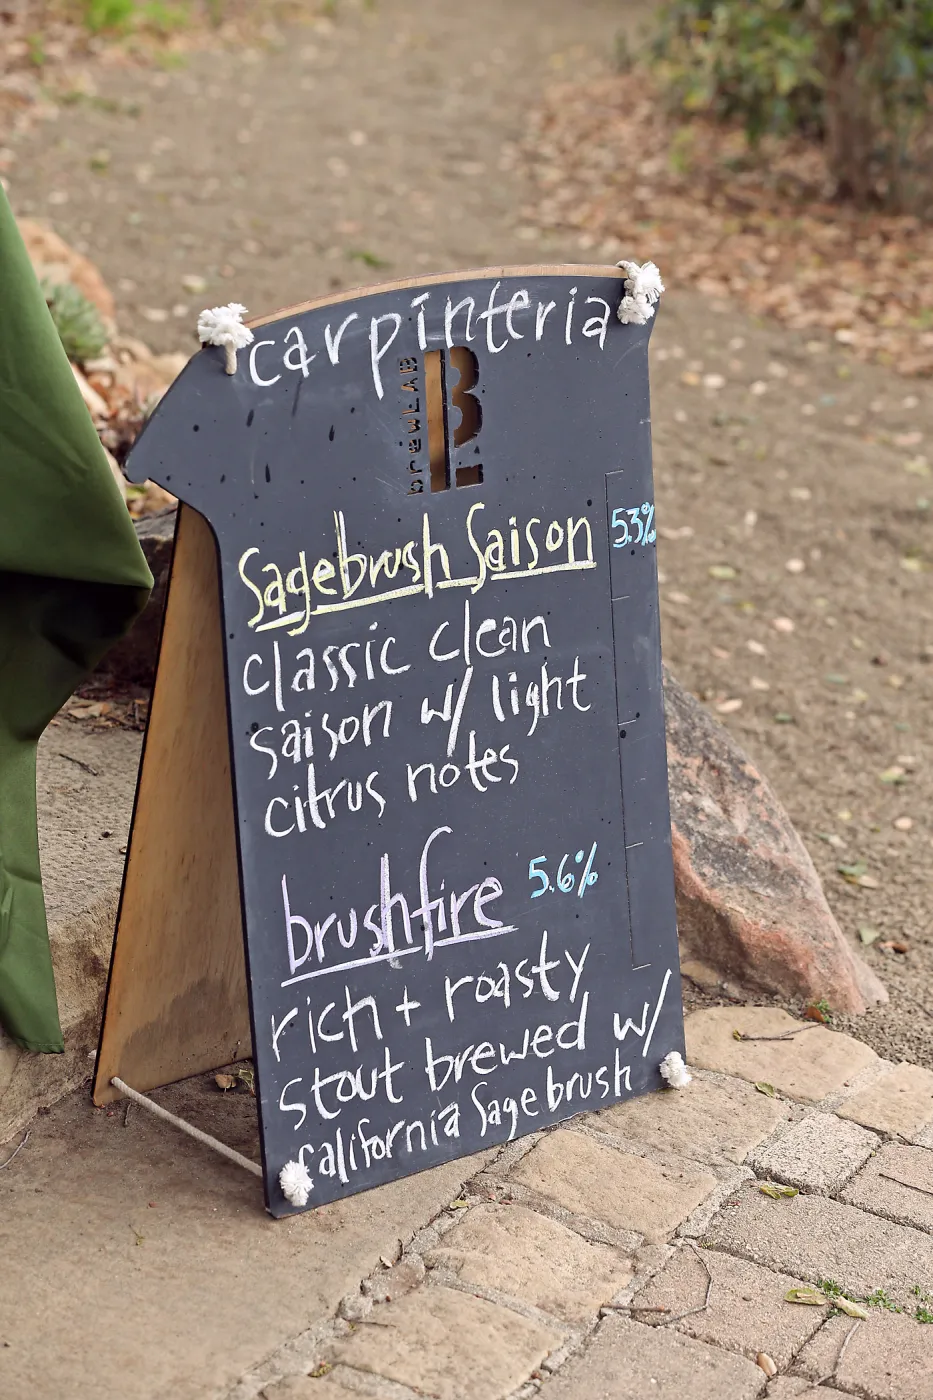 carpinteria
brewLAB
BL
Sagebrush Saison 5.3%
classic clean
saison w/ light
citrus notes
brushfire 5.6%
rich + roasty
stout brewed w/
california Sagebrush